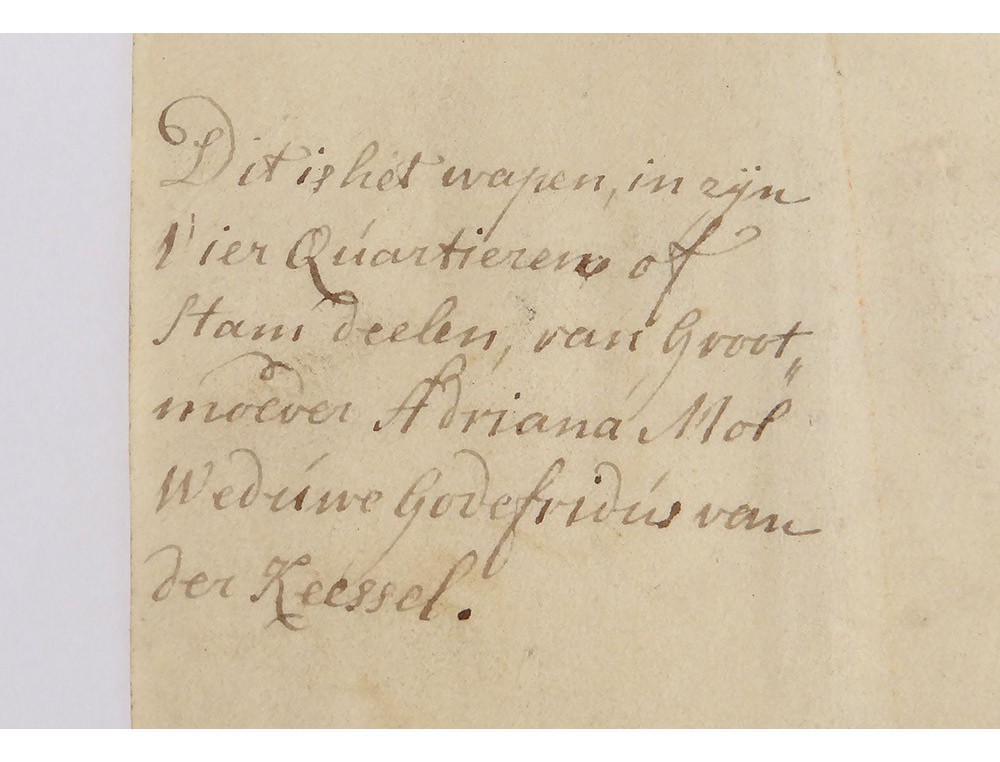 Dit is het wapen, in zÿn
Vier Quartieren of
Stam deelen, van Groot„
moeder Adriana Mol
Weduwe Godefridus van
der Keessel.